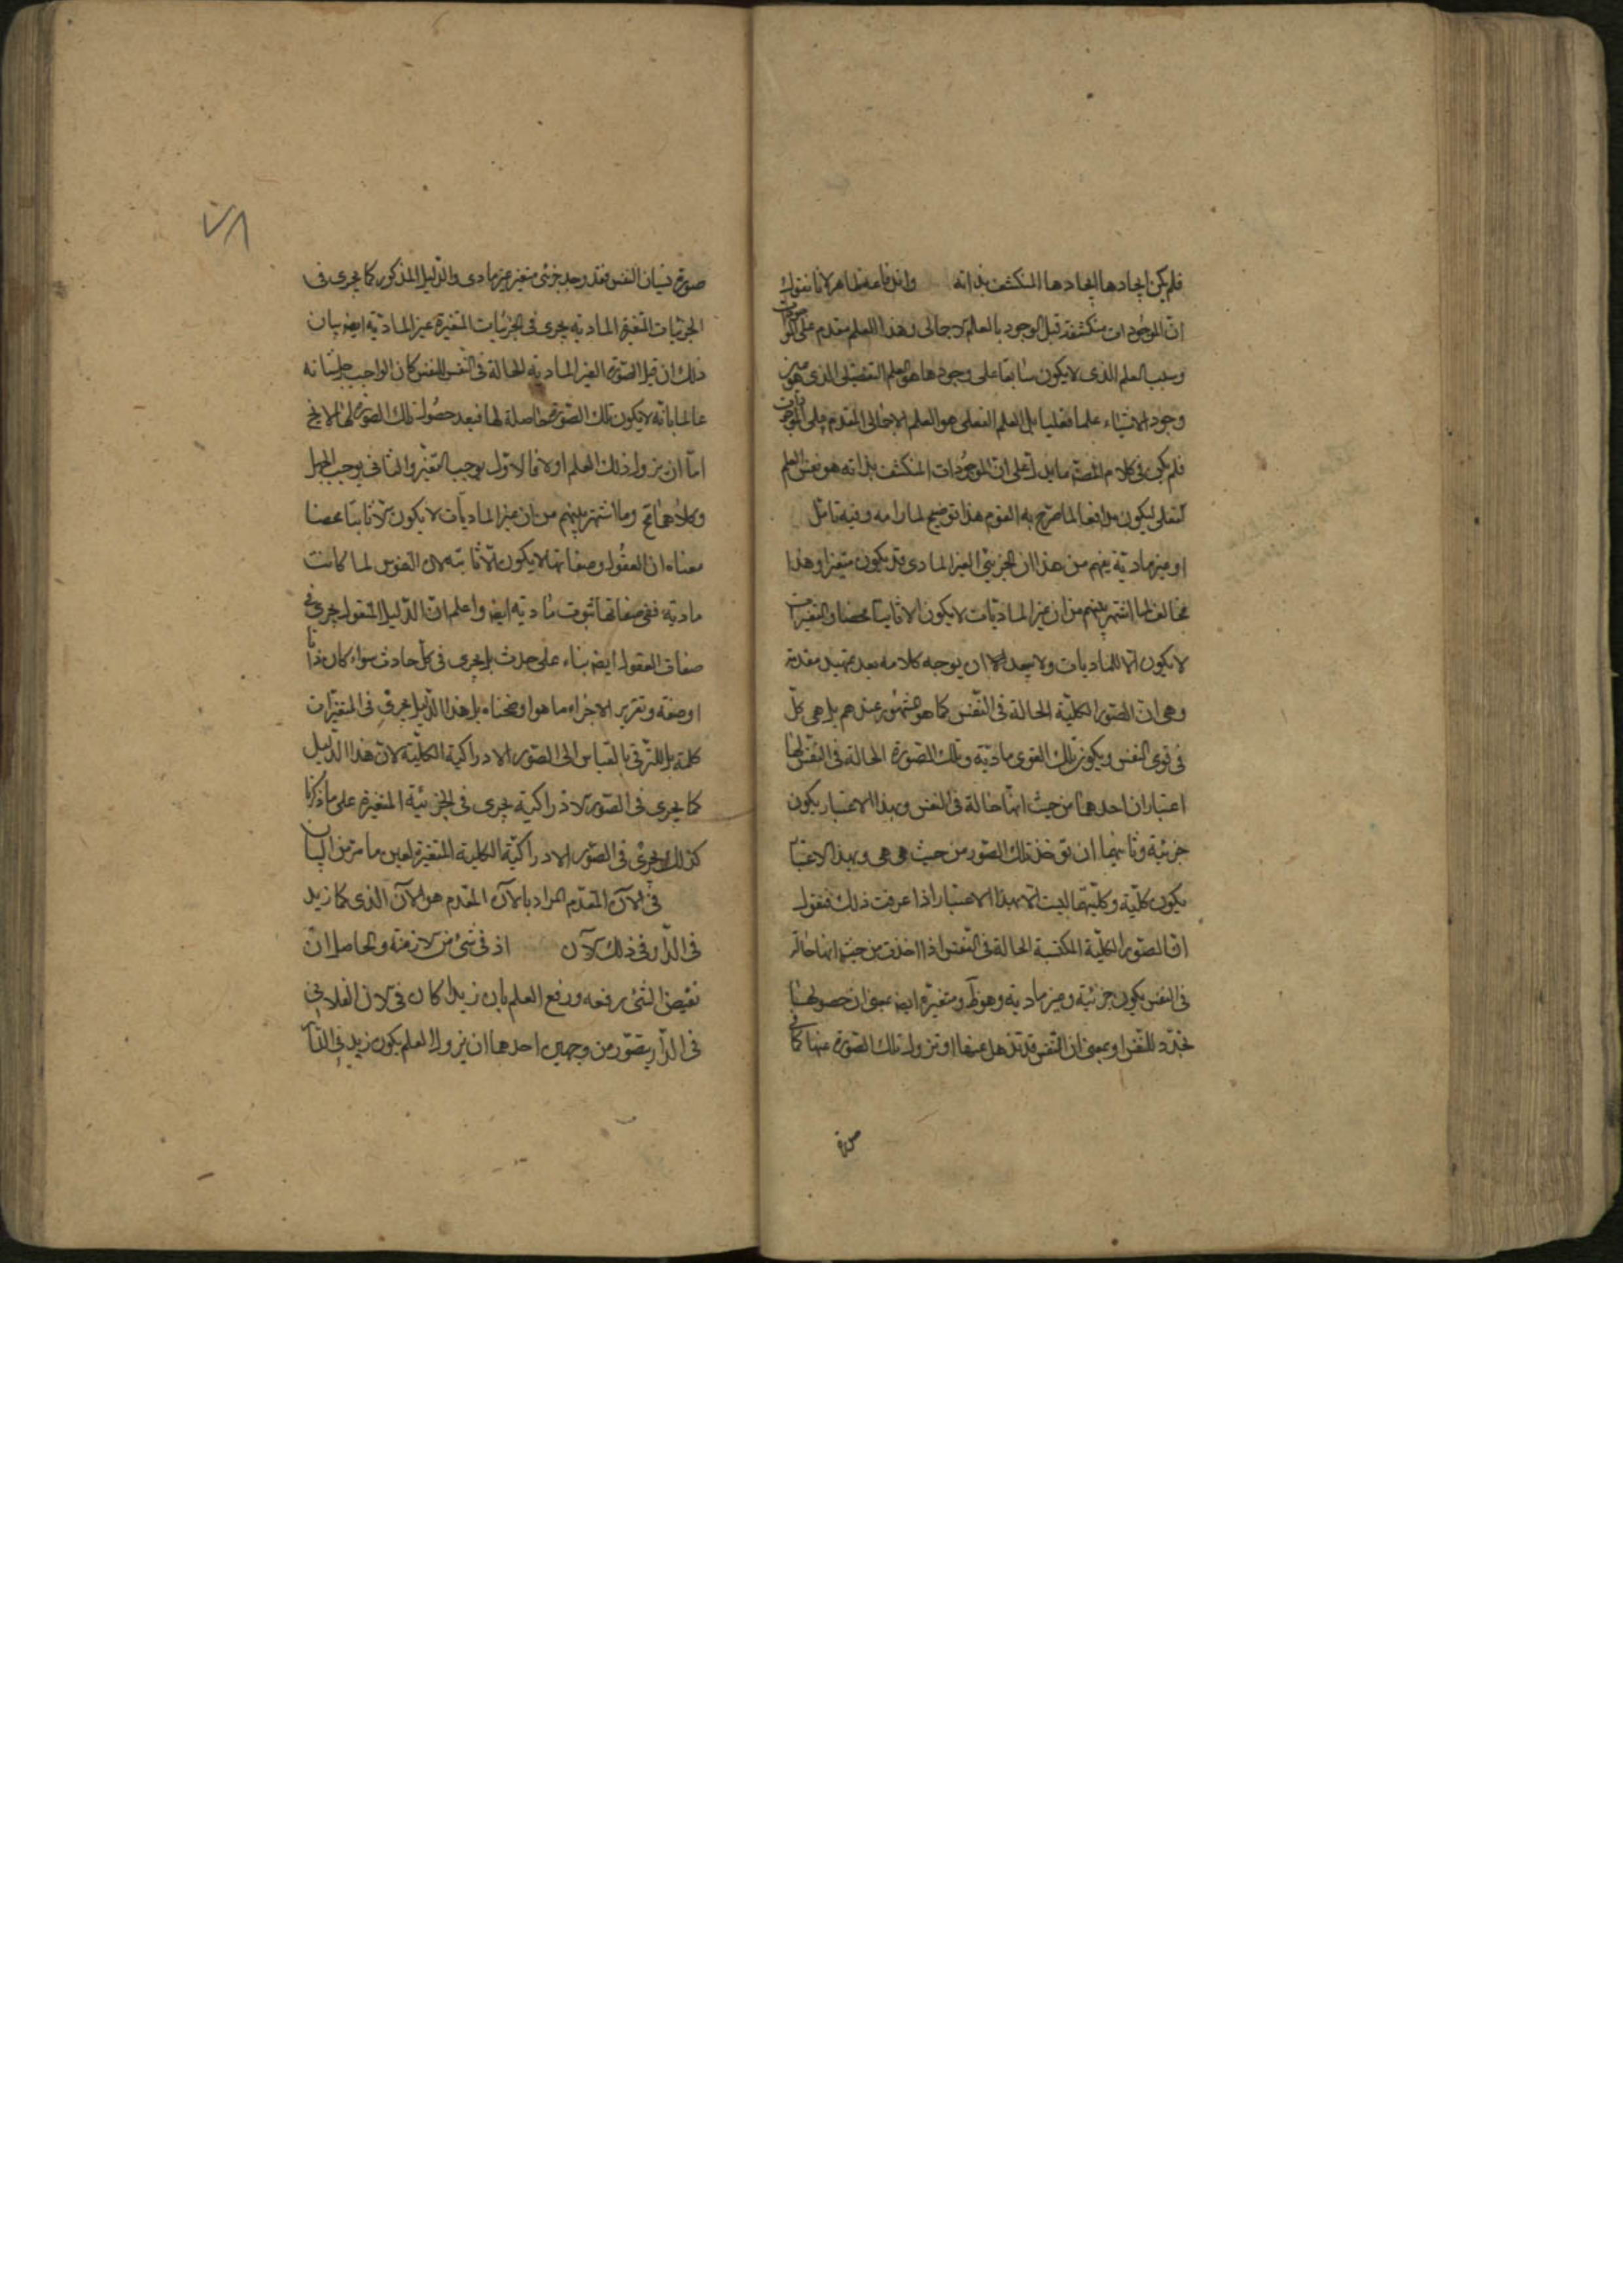 فلم يكن ايجادها ايجادها المنكشف بذاته واندفاعه ظاهر لانا نقول
ان الموجودات منكشفة قبل الوجود بالعلم الاجمالى وهذا العلم مقدم على الموجودات
وسبب العلم الذى لا يكون سابقا على وجودها هو العلم التفصيلى الذى هو عين
وجود الاشياء علما فعليا بل العلم الفعلى هو العلم الاجمالى المقدم على الموجودات
فلم يكن فى كلام المصنف ما يدل على ان الموجودات المنكشف بذاته هو نفس العلم
الفعلى ليكون مدافعا لما صرح به القوم هذا توضيح لما رامه وفيه تامل
او غير مادية يفهم من هذا ان الجزئى الغير المادى قد يكون متغيرا وهذا
مخالف لما اشتهر بينهم من ان غير الماديات لا يكون الا ثابتا محضا والتغيرات
لا يكون الا للماديات ولا يبعد الا ان يوجه كلامه بعد تمهيد مقدمة
وهى ان الصور الكلية الحالة فى النفس كما هو المشهور عندهم بل هى كل
فى قوى النفس ويكون تلك القوى مادية وتلك الصورة الحالة فى النفس لها
اعتباران احدهما من حيث انها حالة فى النفس وبهذا الاعتبار يكون
جزئية وثانيهما ان تؤخذ تلك الصور من حيث هى هى وبهذا الاعتبار
يكون كلية وكليتها ليست الا بهذا الاعتبار اذا عرفت ذلك فنقول
ان الصور الكلية المكتسبة الحالة فى النفس اذا اخذت من حيث انها حالة
فى النفس يكون جزئية وغير مادية وهو ظ ومتغيرة ايضا بمعنى ان حصولها
تجدد للنفس او بمعنى ان النفس قد تذهل عنها او تزول تلك الصورة عنها كما فى
صورة
صورة نسيان النفس فقد وجد جزئى متغير غير مادى والدليل المذكور كما يجرى فى
الجزئيات المتغيرة المادية يجرى فى الجزئيات المتغيرة غير المادية ايضا بيان
ذلك ان قبل الصورة الغير المادية الحالة فى النفس للنفس كان الواجب جل شانه
عالما بانه لا يكون تلك الصورة حاصلة لها فبعد حصول تلك الصورة لها لا يخ
اما ان يزول ذلك العلم اولا فالاول يوجب التغير والثانى يوجب الجهل
وكلاهما مح وما اشتهر بينهم من ان غير الماديات لا يكون الا ثابتا محضا
معناه ان العقول وصفاتها لا يكون الا ثابتة لان النفوس لما كانت
مادية ففى صفاتها شوب مادية ايضا واعلم ان الدليل المنقول يجرى فى
صفات العقول ايضا بناء على حدث بل يجرى فى كل حادث سواء كان ذاتا
او صفة وتقرير الاجراء ما هو اوضحناه بل هذا الدليل يجرى فى المتغيرات
كلمة بل للترقى بالقياس الى الصور الادراكية الكلية لان هذا الدليل
كما يجرى فى الصور الادراكية يجرى فى الجزئية المتغيرة على ما ذكرنا
كذلك يجرى فى الصور الادراكية الكلية المتغيرة بعين ما مر من البيان
فى الآن المتقدم المراد بالآن المتقدم هو الآن الذى كما زيد
فى الدار فى ذلك الآن اذ فى شئ من الازمنة والحاصل ان
نقيض الشئ رفعه ورفع العلم بان زيدا كان فى الان الفلانى
فى الدار يتصور من وجهين احدهما ان يزول العلم بكون زيد فى الدار